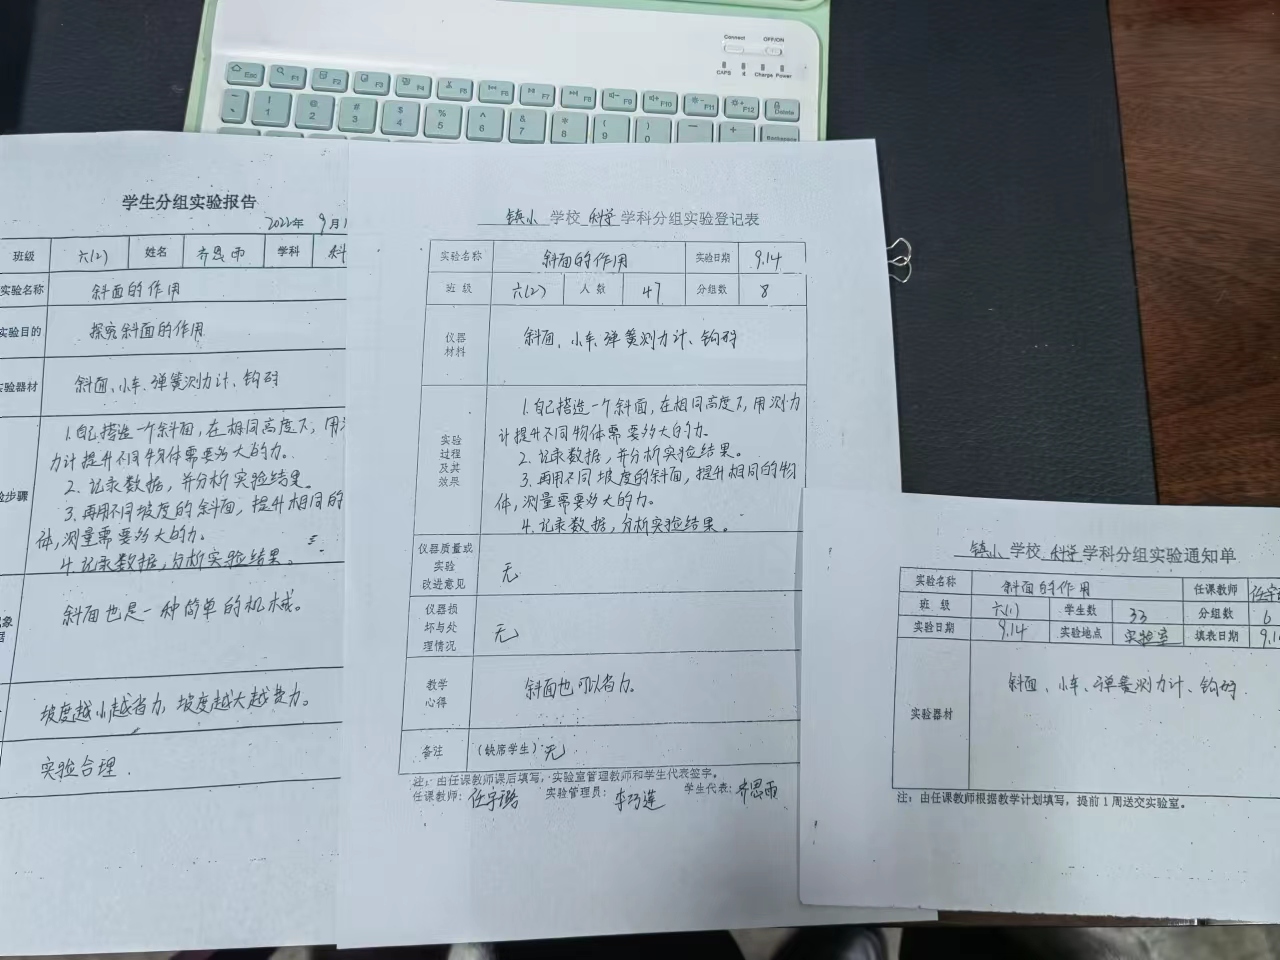 Connect OFF/ON
CAPS Charge Power
Esc F1 F2 F3 F4 F5 F6 F7 F8 F9 F10 F11 F12 Delete
! @ # $ % ^ & * ( ) — +
1 2 3 4 5 6 7 8 9 0 Backspace
学生分组实验报告
2022年 9月1
班级 六(2) 姓名 齐思雨 学科 科
实验名称 斜面的作用
实验目的 探究斜面的作用
实验器材 斜面、小车、弹簧测力计、钩码
验步骤
1.自己搭造一个斜面,在相同高度下,用测
力计提升不同物体需要多大的力。
2.记录数据,并分析实验结果。
3.再用不同坡度的斜面,提升相同的
体,测量需要多大的力。
4.记录数据,分析实验结果。
象
据
斜面也是一种简单的机械。
坡度越小越省力,坡度越大越费力。
实验合理.
镇小 学校 科学 学科分组实验登记表
实验名称 斜面的作用 实验日期 9.14
班 级 六(2) 人 数 47 分组数 8
仪器
材料
斜面、小车、弹簧测力计、钩码
实验
过程
及其
效果
1.自己搭造一个斜面,在相同高度下,用测力
计提升不同物体需要多大的力.
2.记录数据,并分析实验结果。
3.再用不同坡度的斜面,提升相同的物
体,测量需要多大的力。
4.记录数据,分析实验结果。
仪器质量或
实验
改进意见
无
仪器损
坏与处
理情况
无
教学
心得
斜面也可以省力.
备注 (缺席学生) 无
注:由任课教师课后填写,实验室管理教师和学生代表签字。
任课教师: 任宇璐 实验管理员: 李巧莲 学生代表: 齐思雨
镇小 学校 科学 学科分组实验通知单
实验名称 斜面的作用 任课教师 任宇
班 级 六(1) 学生数 33 分组数 6
实验日期 9.14 实验地点 实验室 填表日期 9.1
实验器材 斜面、小车、弹簧测力计、钩码.
注:由任课教师根据教学计划填写,提前1周送交实验室。